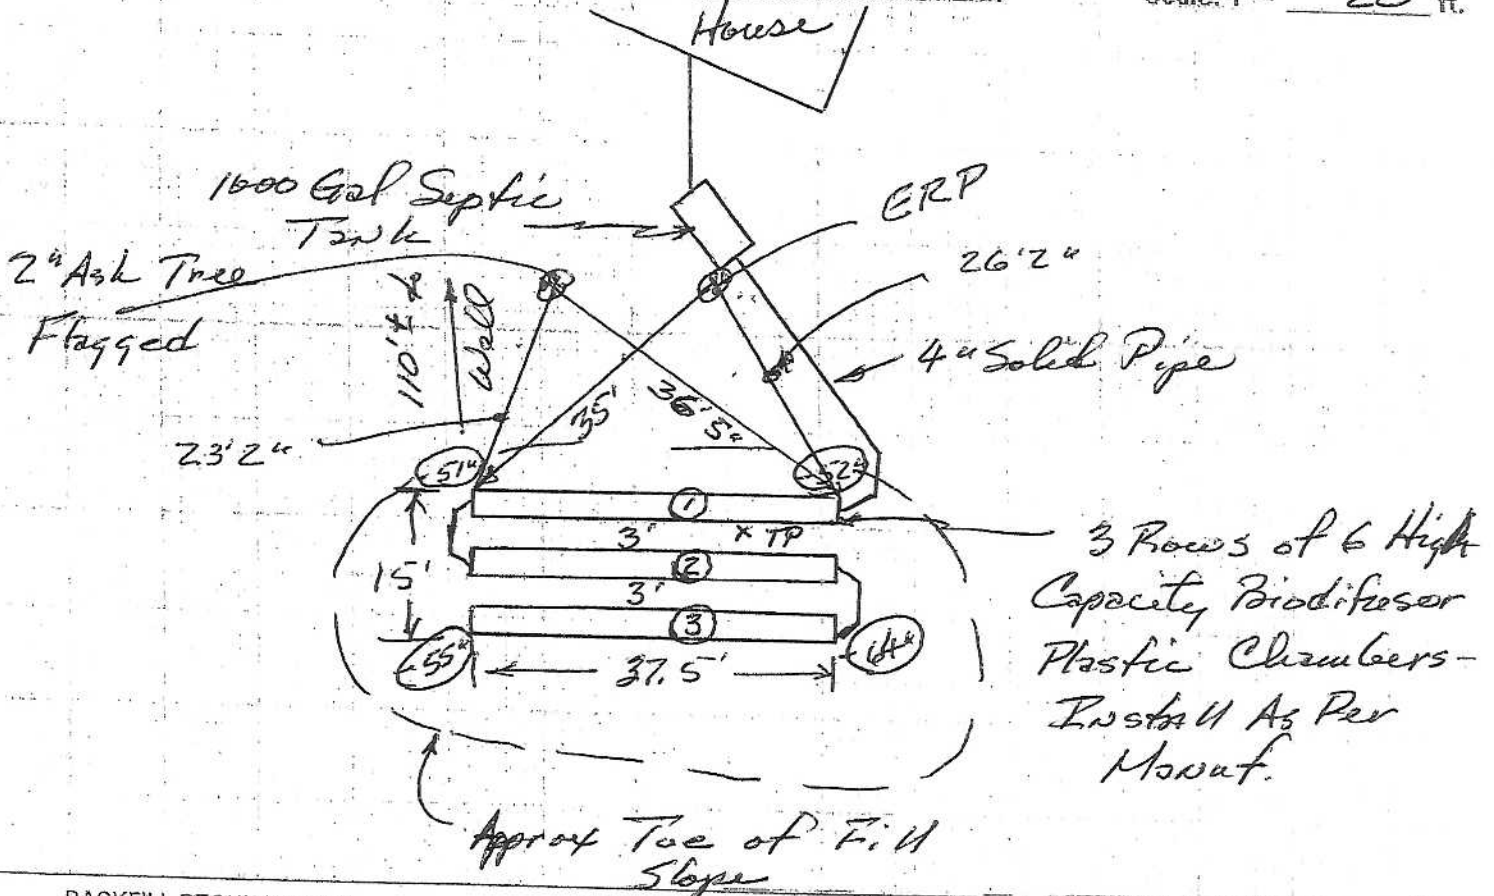 House
ft.
1000 Gal Septic
Tank
ERP
2" Ash Tree
Flagged
26'2"
110'± to
Well
4" Solid Pipe
35'
36'5"
23'2"
-51"
-52"
1
3'
x TP
2
3'
3
15'
-55"
37.5'
-64"
3 Rows of 6 High
Capacity Biodifusor
Plastic Chambers-
Install As Per
Manuf.
Approx Toe of Fill
Slope